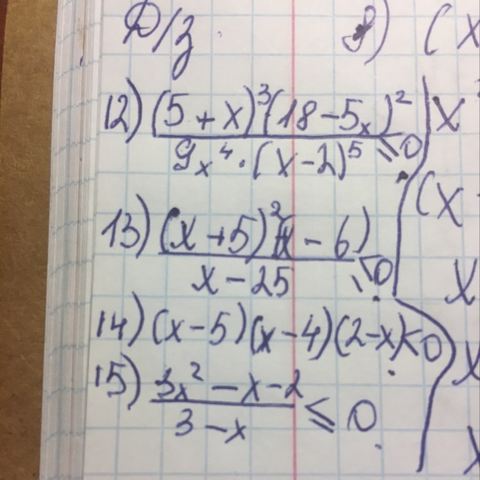 Д/з. 8) (x
12) (5 + x)³(18 - 5x)² / 9x⁴ · (x - 2)⁵ ≤ 0 x
(x
13) (x + 5)²(x - 6) / x - 25 ≤ 0 x
14) (x - 5)(x - 4)(2 - x) < 0 x
15) 3x² - x - 2 / 3 - x ≤ 0